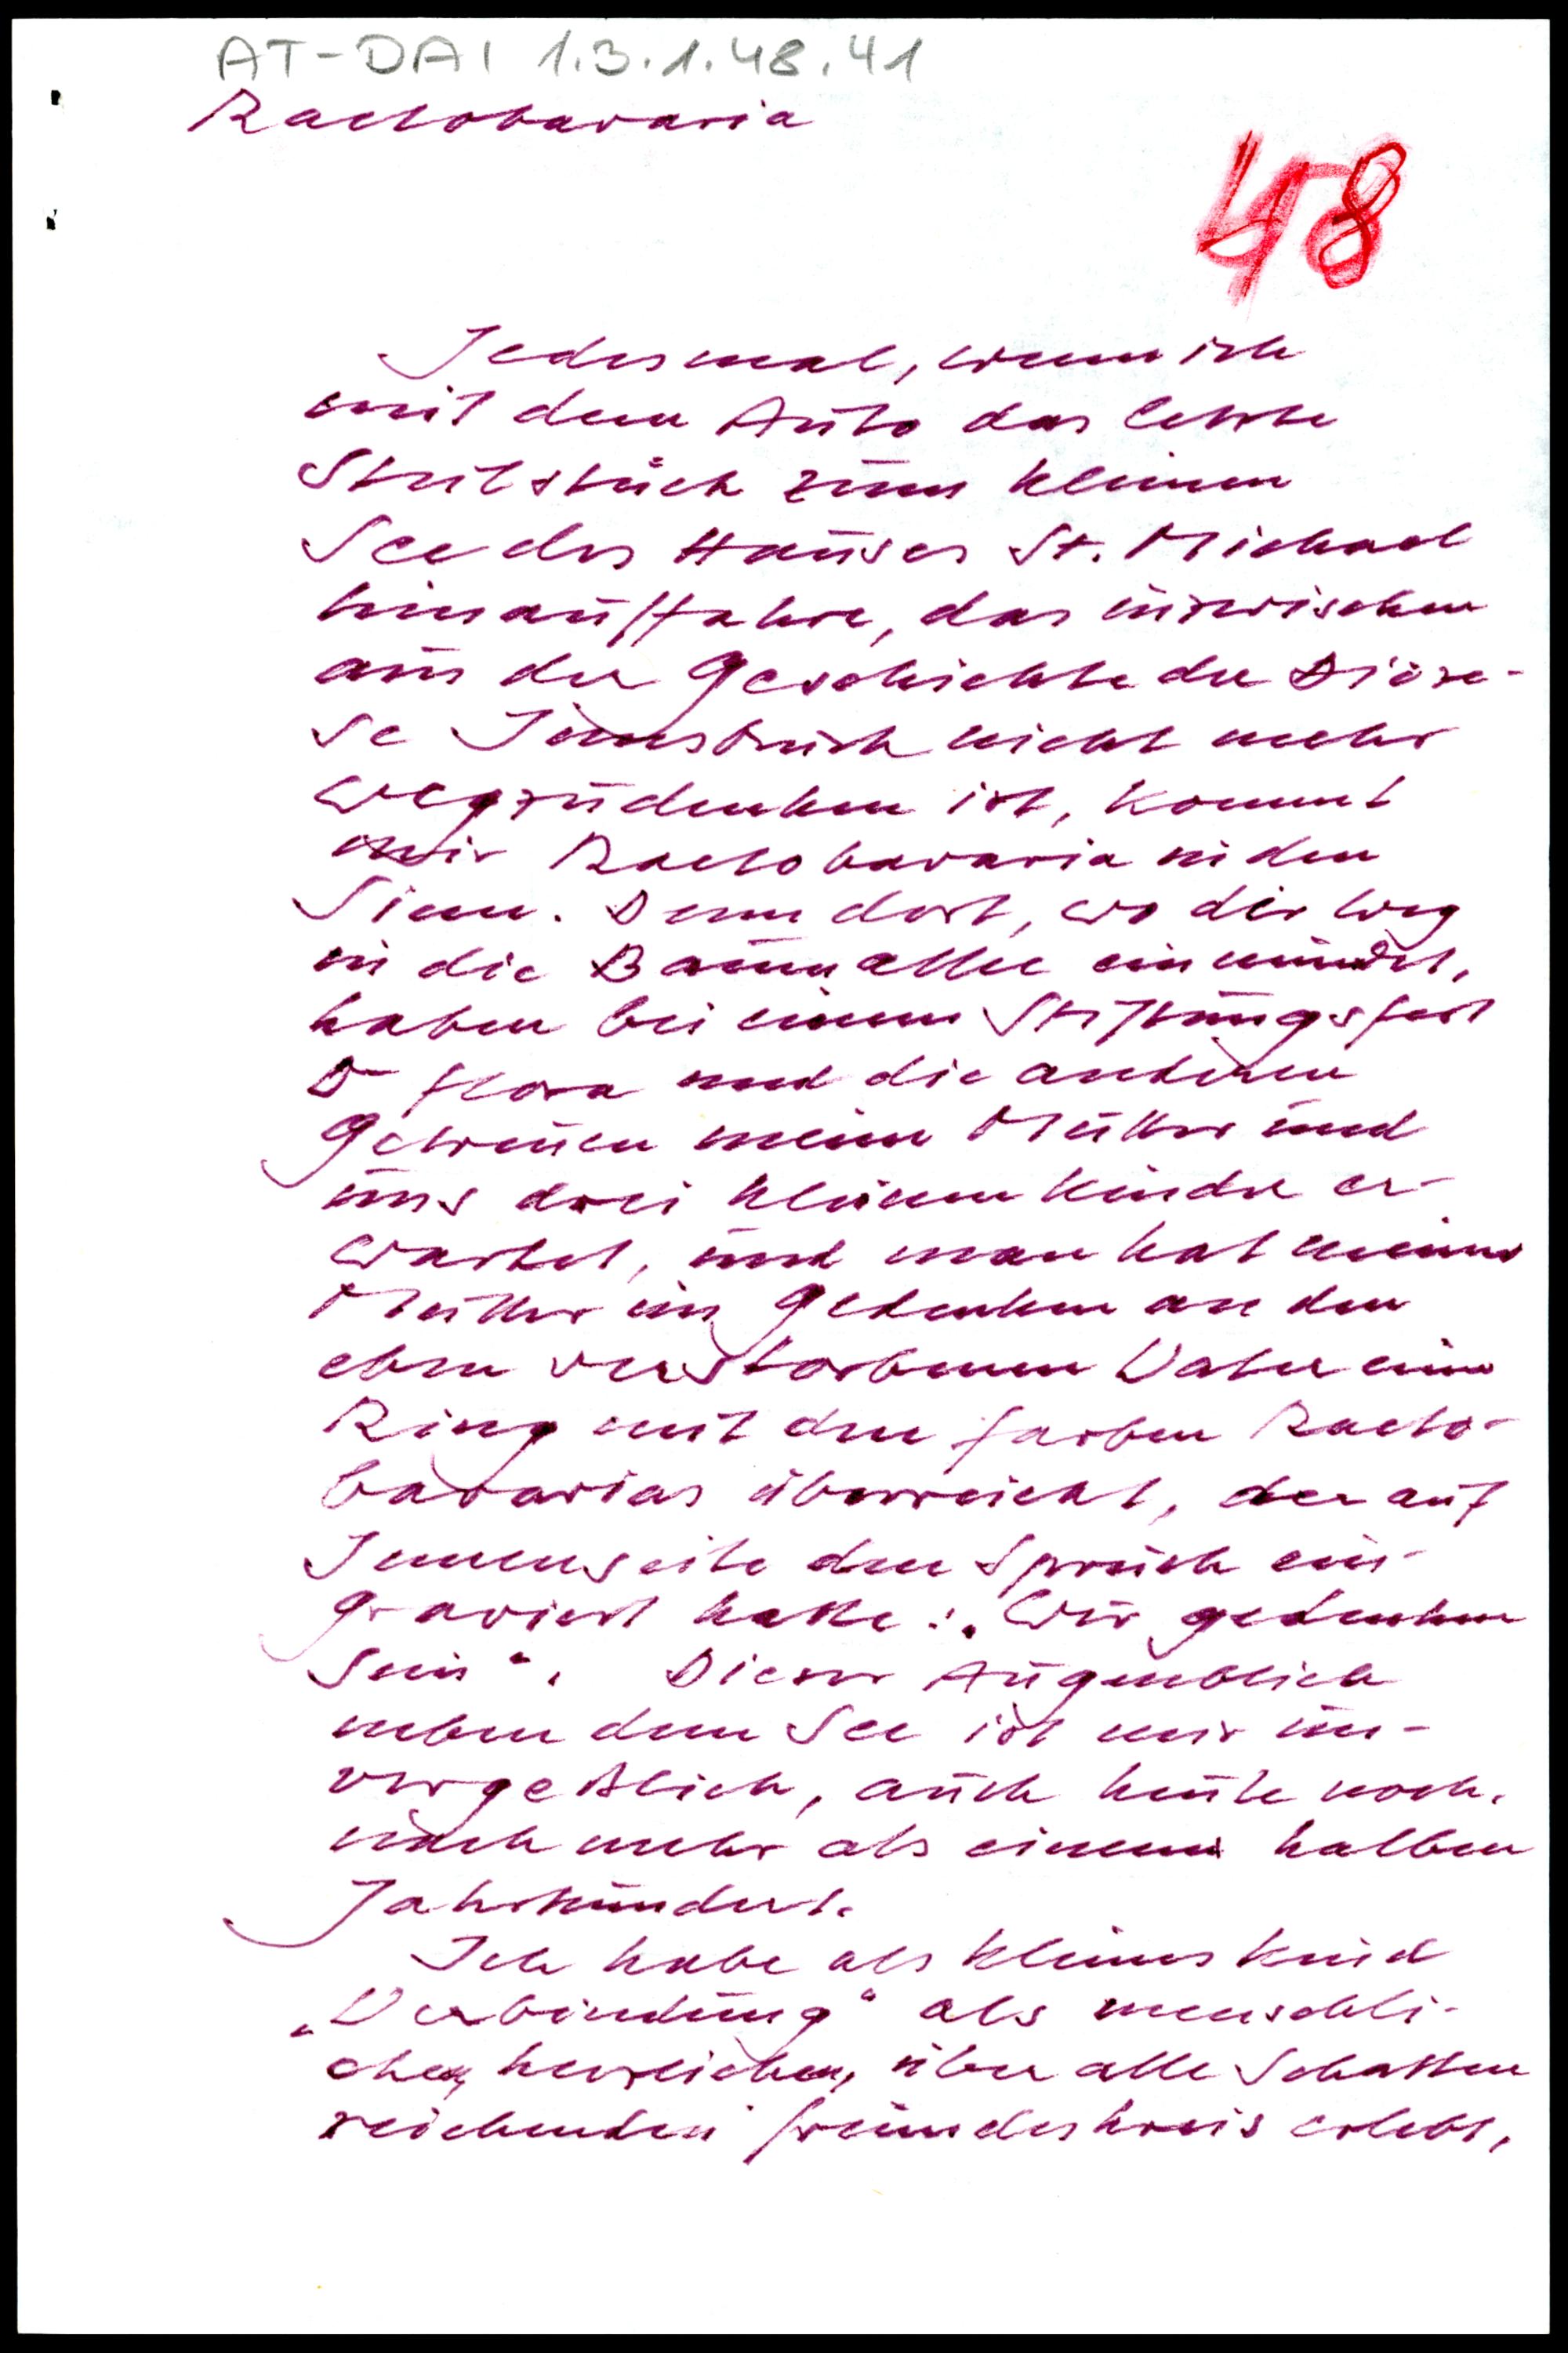 AT-DAI 1.3.1.48.41
Raetobavaria
48
Jedesmal, wenn ich
mit dem Auto das letzte
Steilstück zum kleinen
See des Hauses St. Michael
hinauffahre, das inzwischen
aus der Geschichte der Diöze-
se Innsbruck nicht mehr
wegzudenken ist, kommt
mir Raetobavaria in den
Sinn. Denn dort, wo der Weg
in die Baumallee einmündet,
haben bei einem Stiftungsfest
Flora und die anderen
Getreuen meine Mutter und
uns drei kleinen Kinder er-
wartet, und man hat meiner
Mutter im Gedenken an den
eben verstorbenen Vater einen
Ring mit den Farben Raeto-
bavarias überreicht, der auf
Innenseite den Spruch ein-
graviert hatte: „Wir gedenken
Sein". Dieser Augenblick
neben dem See ist mir un-
vergeßlich, auch heute noch,
nach mehr als einem halben
Jahrhundert.
Ich habe als kleines Kind
„Verbindung" als menschli-
chen, herzlichen, über alle Schatten
reichenden Freundeskreis erlebt,